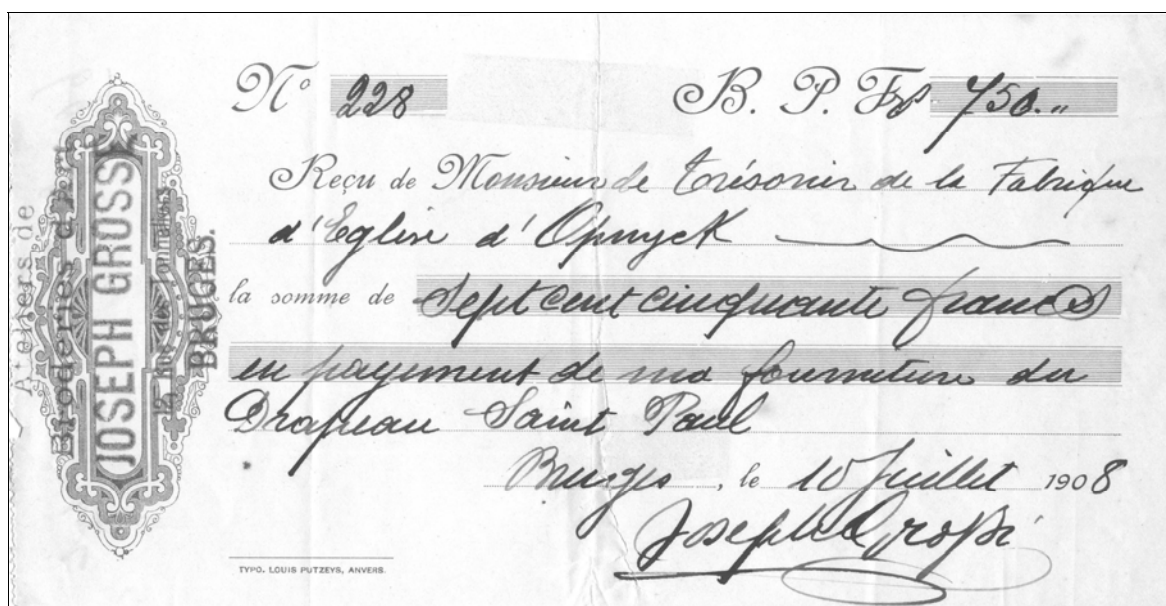 Ateliers de
Broderies d'Art
JOSEPH GROSSÉ
15, Rue des
BRUGES.
Nº 228 B. P. Frs 750.„
Reçu de Monsieur le Trésorier de la Fabrique
d'Eglise d'Opuyck
la somme de Sept cent cinquante francs
en payement de ma fourniture du
Drapeau Saint Paul
Bruges, le 10 Juillet 1908
Joseph Grossé
TYPO. LOUIS PUTZEYS, ANVERS.